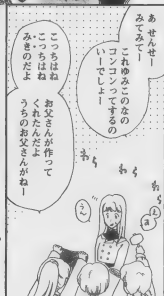 あ せんせー
みてみてー
これゆみこなの
コンコンってするの
いーでしょー
こっちはね
こっちはね
みきのだよ
お父さんが作って
くれたんだよ
うちのお父さんがねー
わら
わら
うん